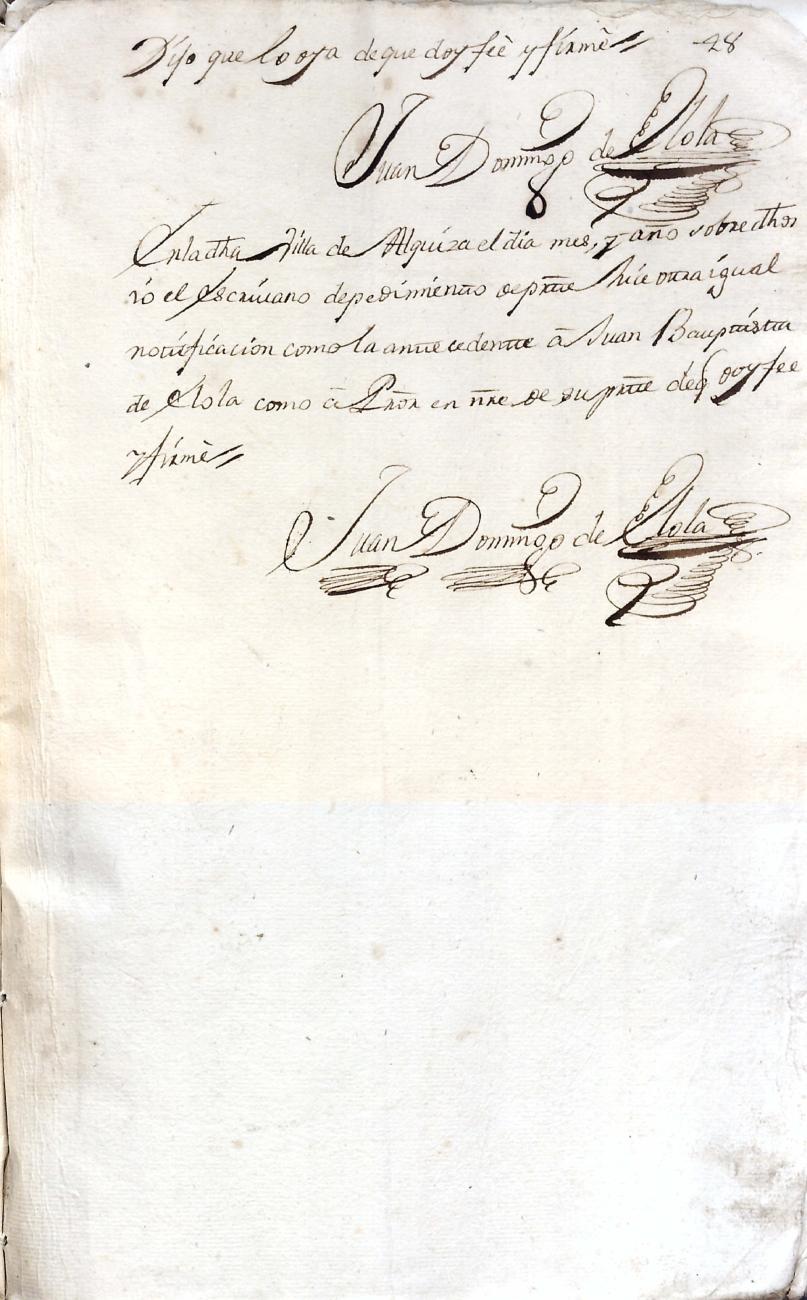 Dijo que lo oya de que doy feè y firmè 28
Juan Domingo de Elola
En la dha Villa de Alquiza el dia mes, y año sobre dhos
io el Escriuano de pedimiento de prtte hice otra igual
nottificacion como la antteçedentte â Juan Bauptistta
de Elola como â Pror en nre de su prtte de q doy fee
y firmè
Juan Domingo de Elola